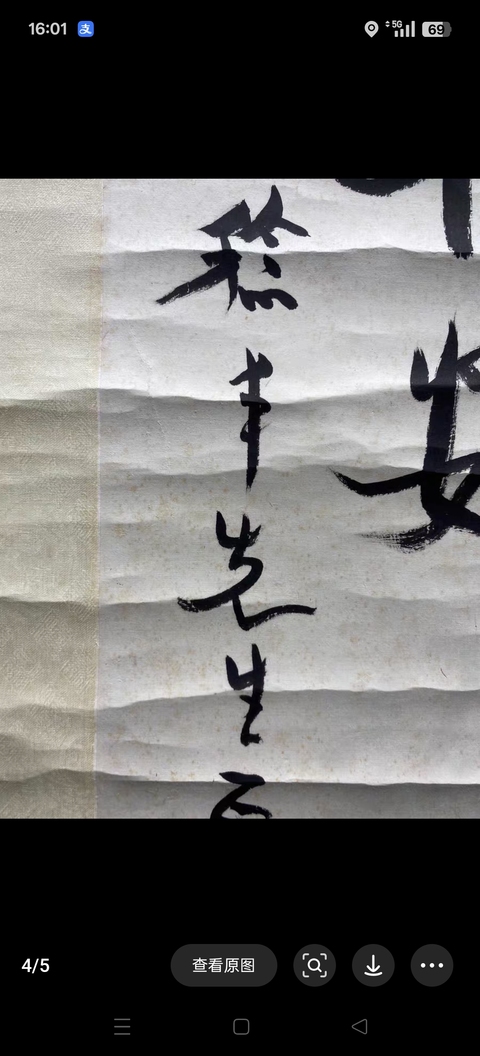 16:01 支 5G 69
安
稔丰先生
4/5 查看原图